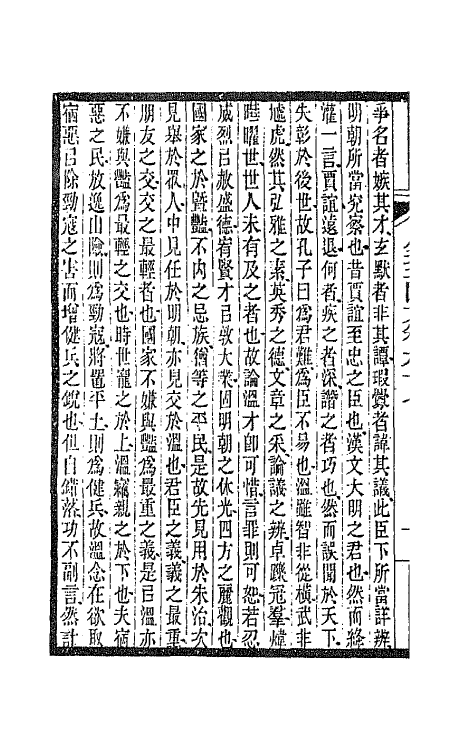 爭名者嫉其才玄默者非其譚瑕釁者諱其議此臣下所當詳辨
明朝所當究察也昔賈誼至忠之臣也漢文大明之君也然而絳
灌一言賈誼遠退何者疾之者深譖之者巧也然而誤聞於天下
失彰於後世故孔子曰爲君難爲臣不易也溫雖智非從橫武非
虓虎然其弘雅之素英秀之德文章之采論議之辨卓躒冠羣煒
曄曜世世人未有及之者也故論溫才卽可惜言罪則可恕若忍
威烈㠯赦盛德宥賢才㠯敦大業固明朝之休光四方之麗觀也
國家之於曁豔不內之忌族猶等之平民是故先見用於朱治次
見舉於眾人中見任於明朝亦見交於溫也君臣之義義之最重
朋友之交交之最輕者也國家不嫌與豔爲最重之義是㠯溫亦
不嫌與豔爲最輕之交也時世寵之於上溫竊親之於下也夫宿
惡之民放逸山險則爲勁寇將置平土則爲健兵故溫念在欲取
宿惡㠯除勁寇之害而增健兵之銳也但自錯落功不副言然計